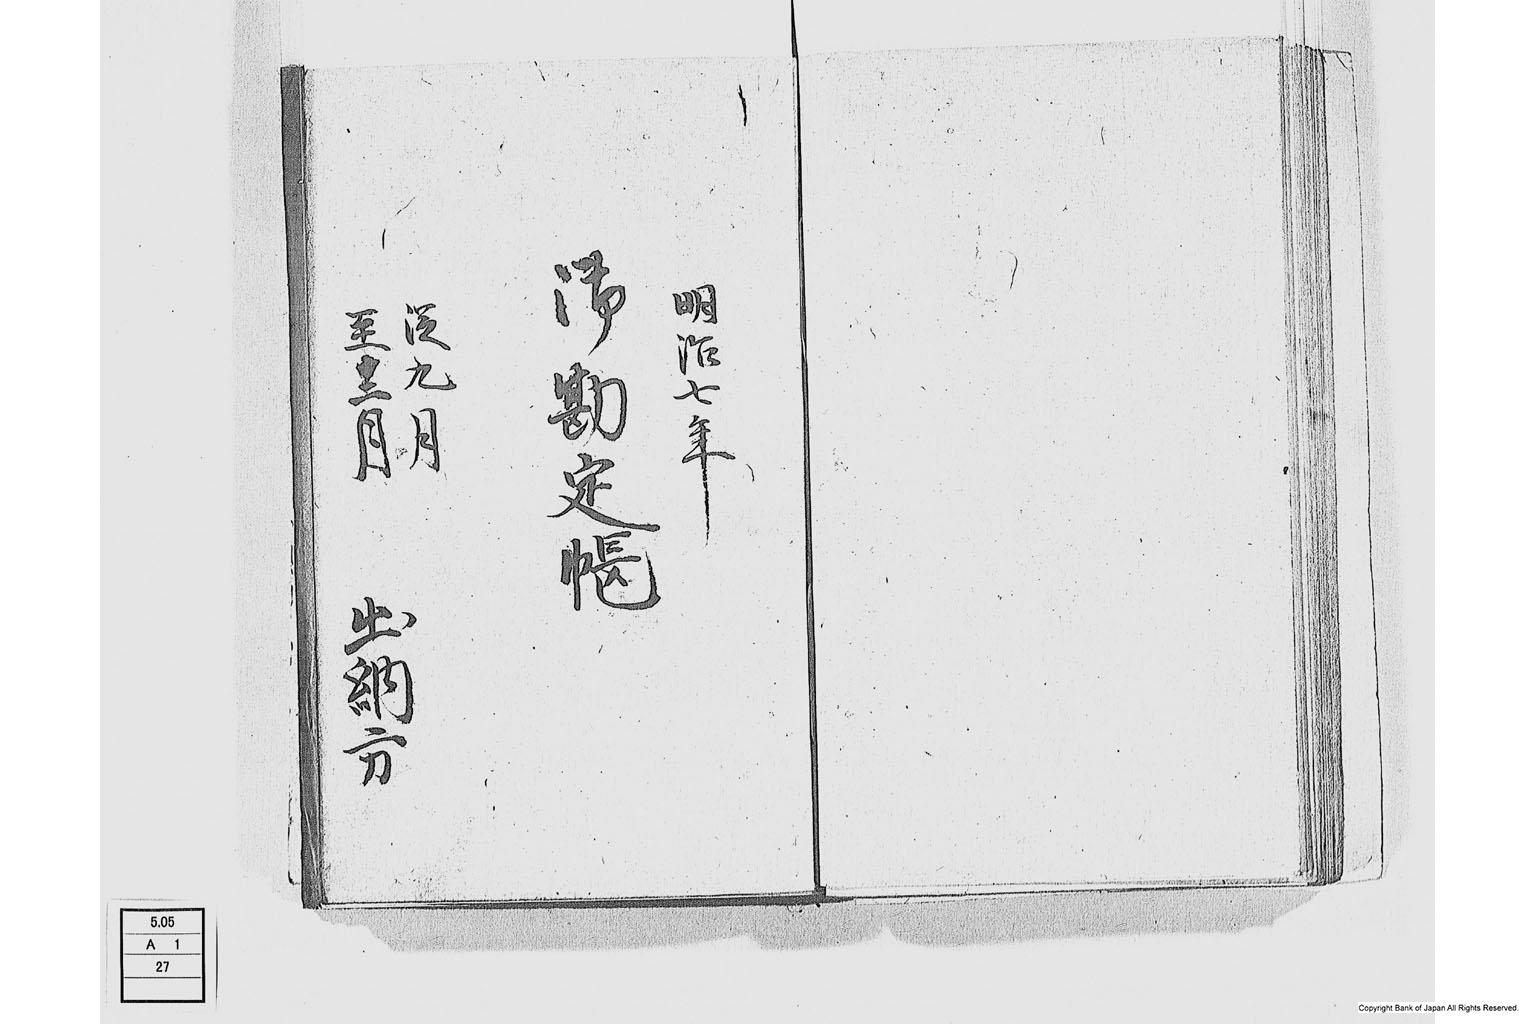 明治七年
御勘定帳
従九月
至十二月
出納方
5.05
A 1
27
Copyright Bank of Japan All Rights Reserved.